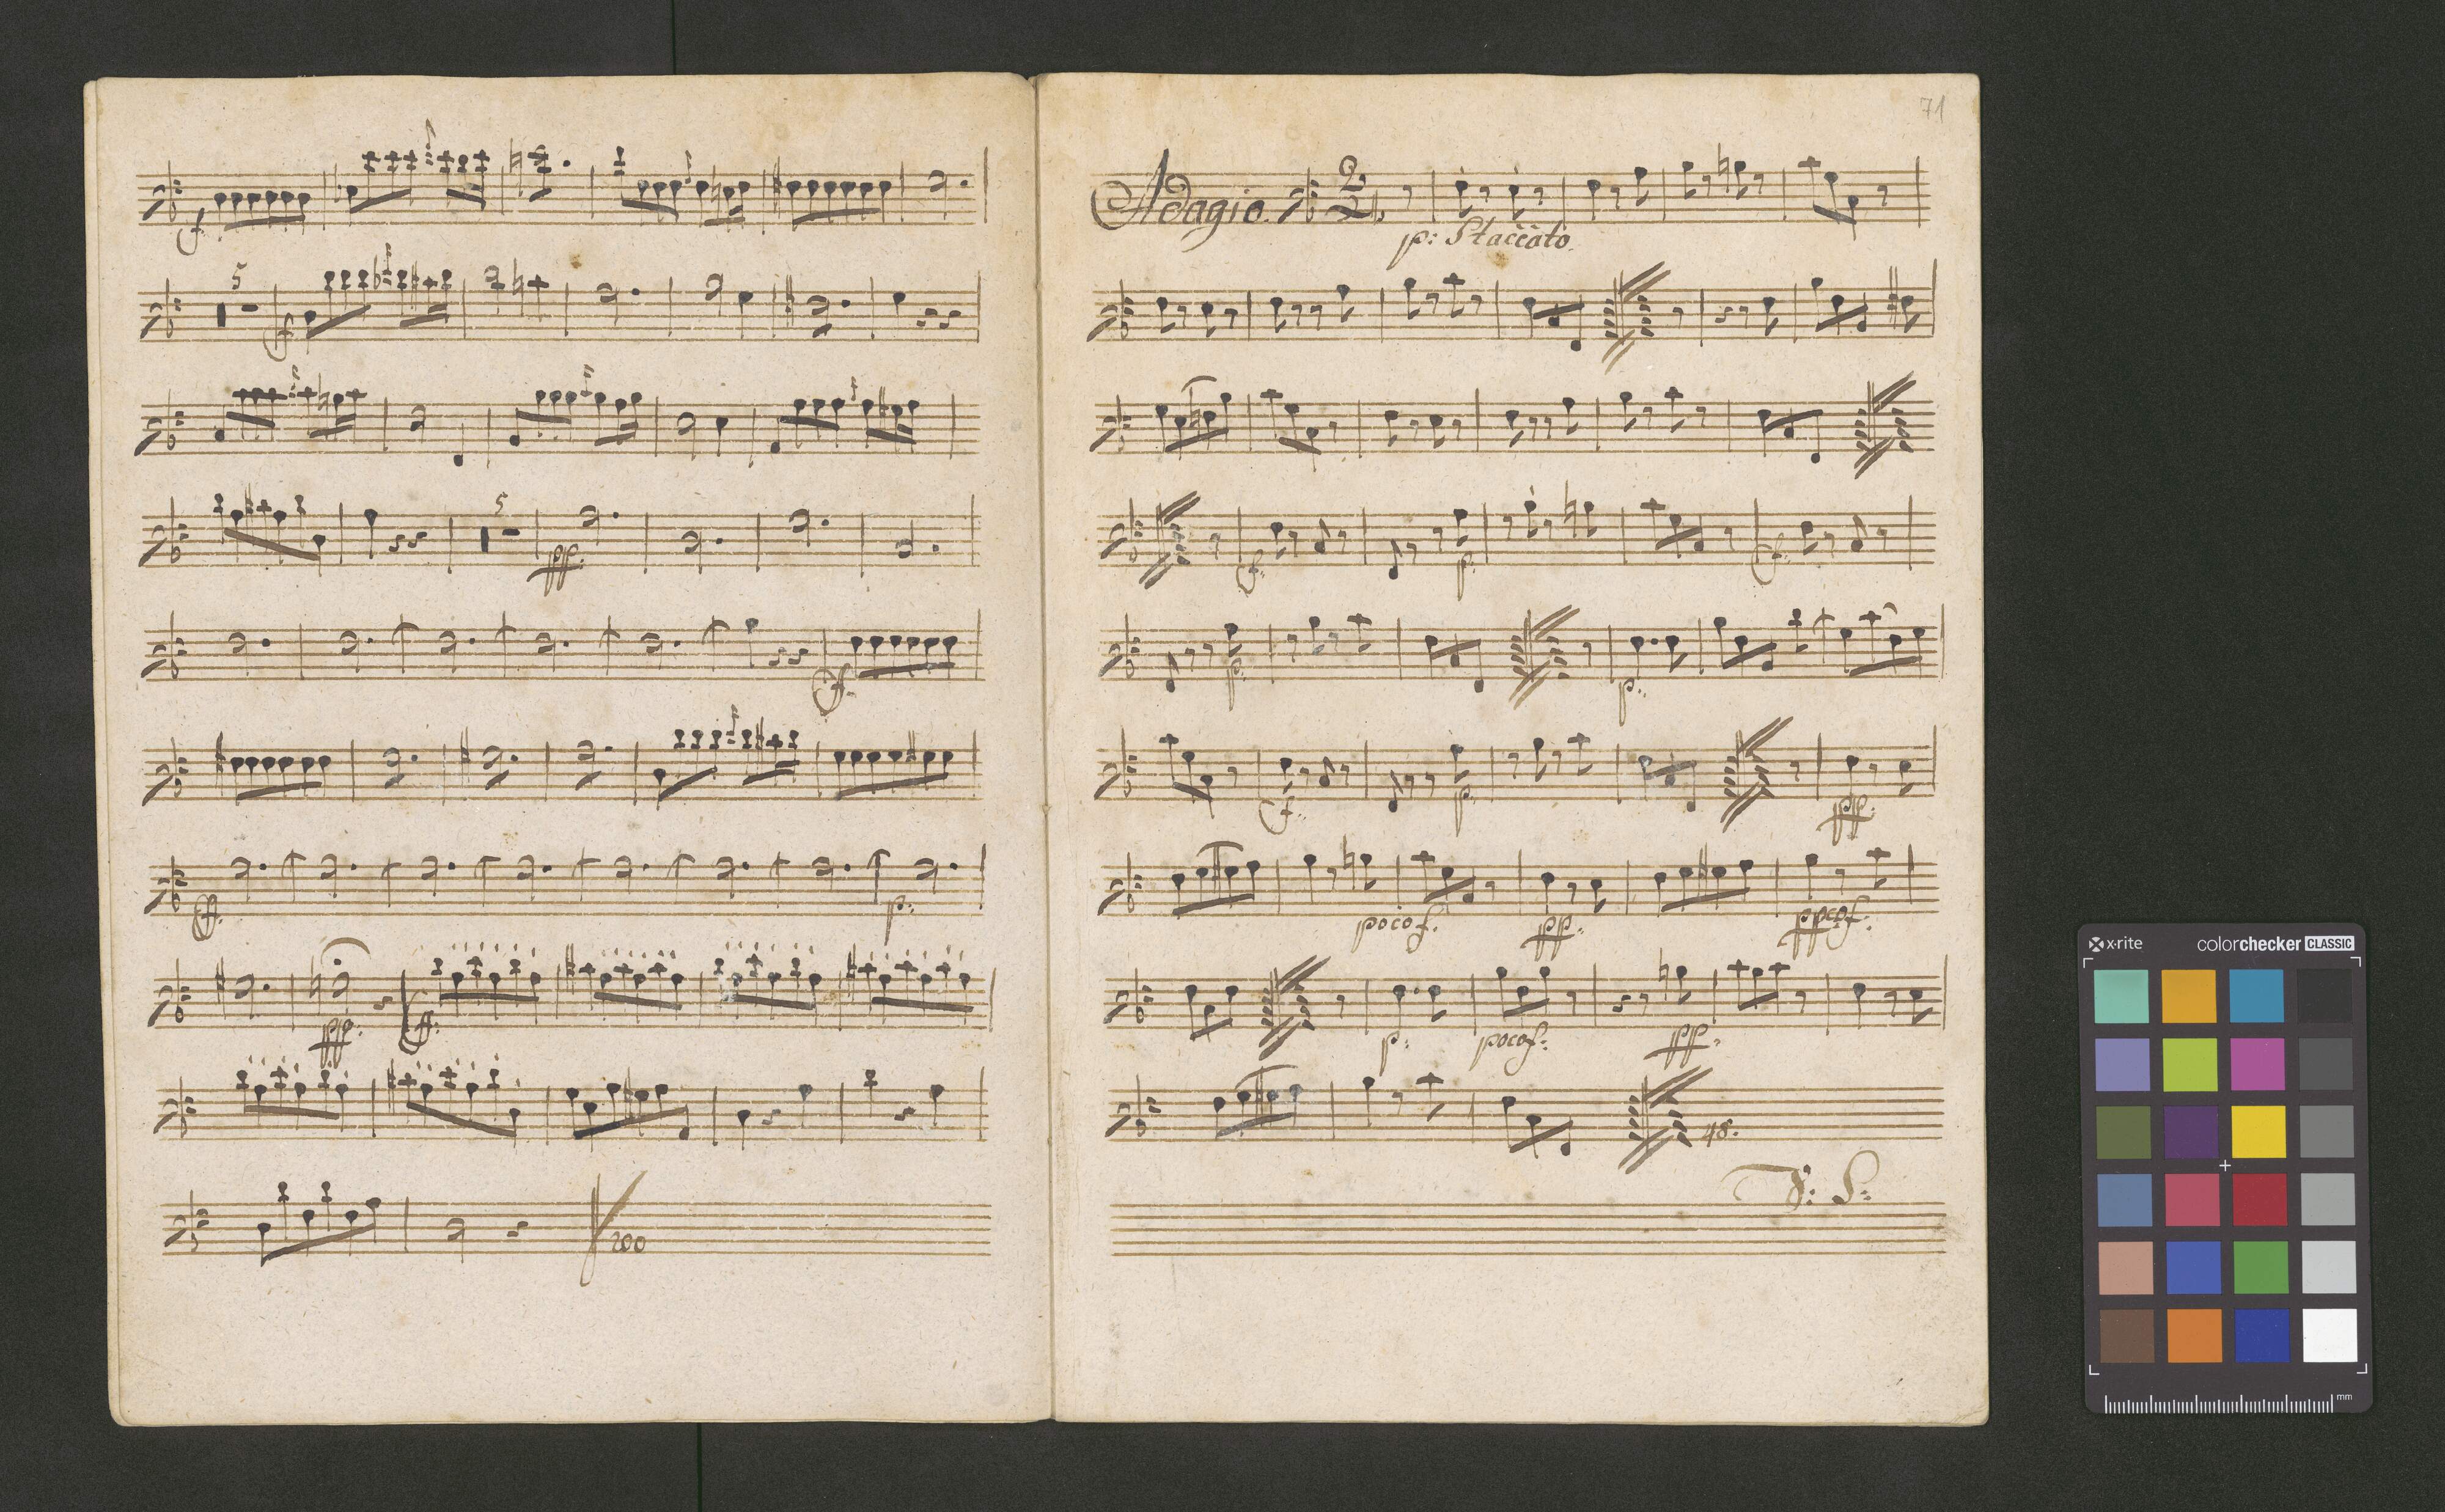 f.
5
f
5
pp.
f.
ff.
p.
pp.
ff:
200
71
Adagio.
2
4
p: Staccato.
f: p: f:
p: p:
f: p: pp:
poco f. pp. f.
p: poco f: pp.
48.
D: S:
x-rite colorchecker CLASSIC
mm